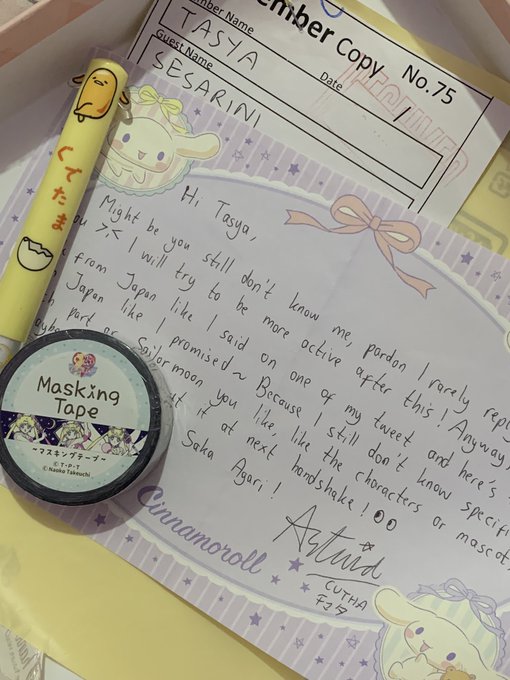 mber Copy No.75
mber Name
TASYA
Date
/
Guest Name
SESARINI
くでたま
Hi Tasya,
Might be you still don't know me, pardon I rarely reply
ou >,< I will try to be more active after this! Anyway
from Japan like I said on one of my tweet and here's
Japan like I promised~ Because I still don't know specific
part or Sailormoon you like, like the characters or mascot,
it at next handshake!
Saka Agari!
Astrid
CUTHA
Cinnamoroll
Masking
Tape
~マスキングテープ~
© T・P・T
© Naoko Takeuchi